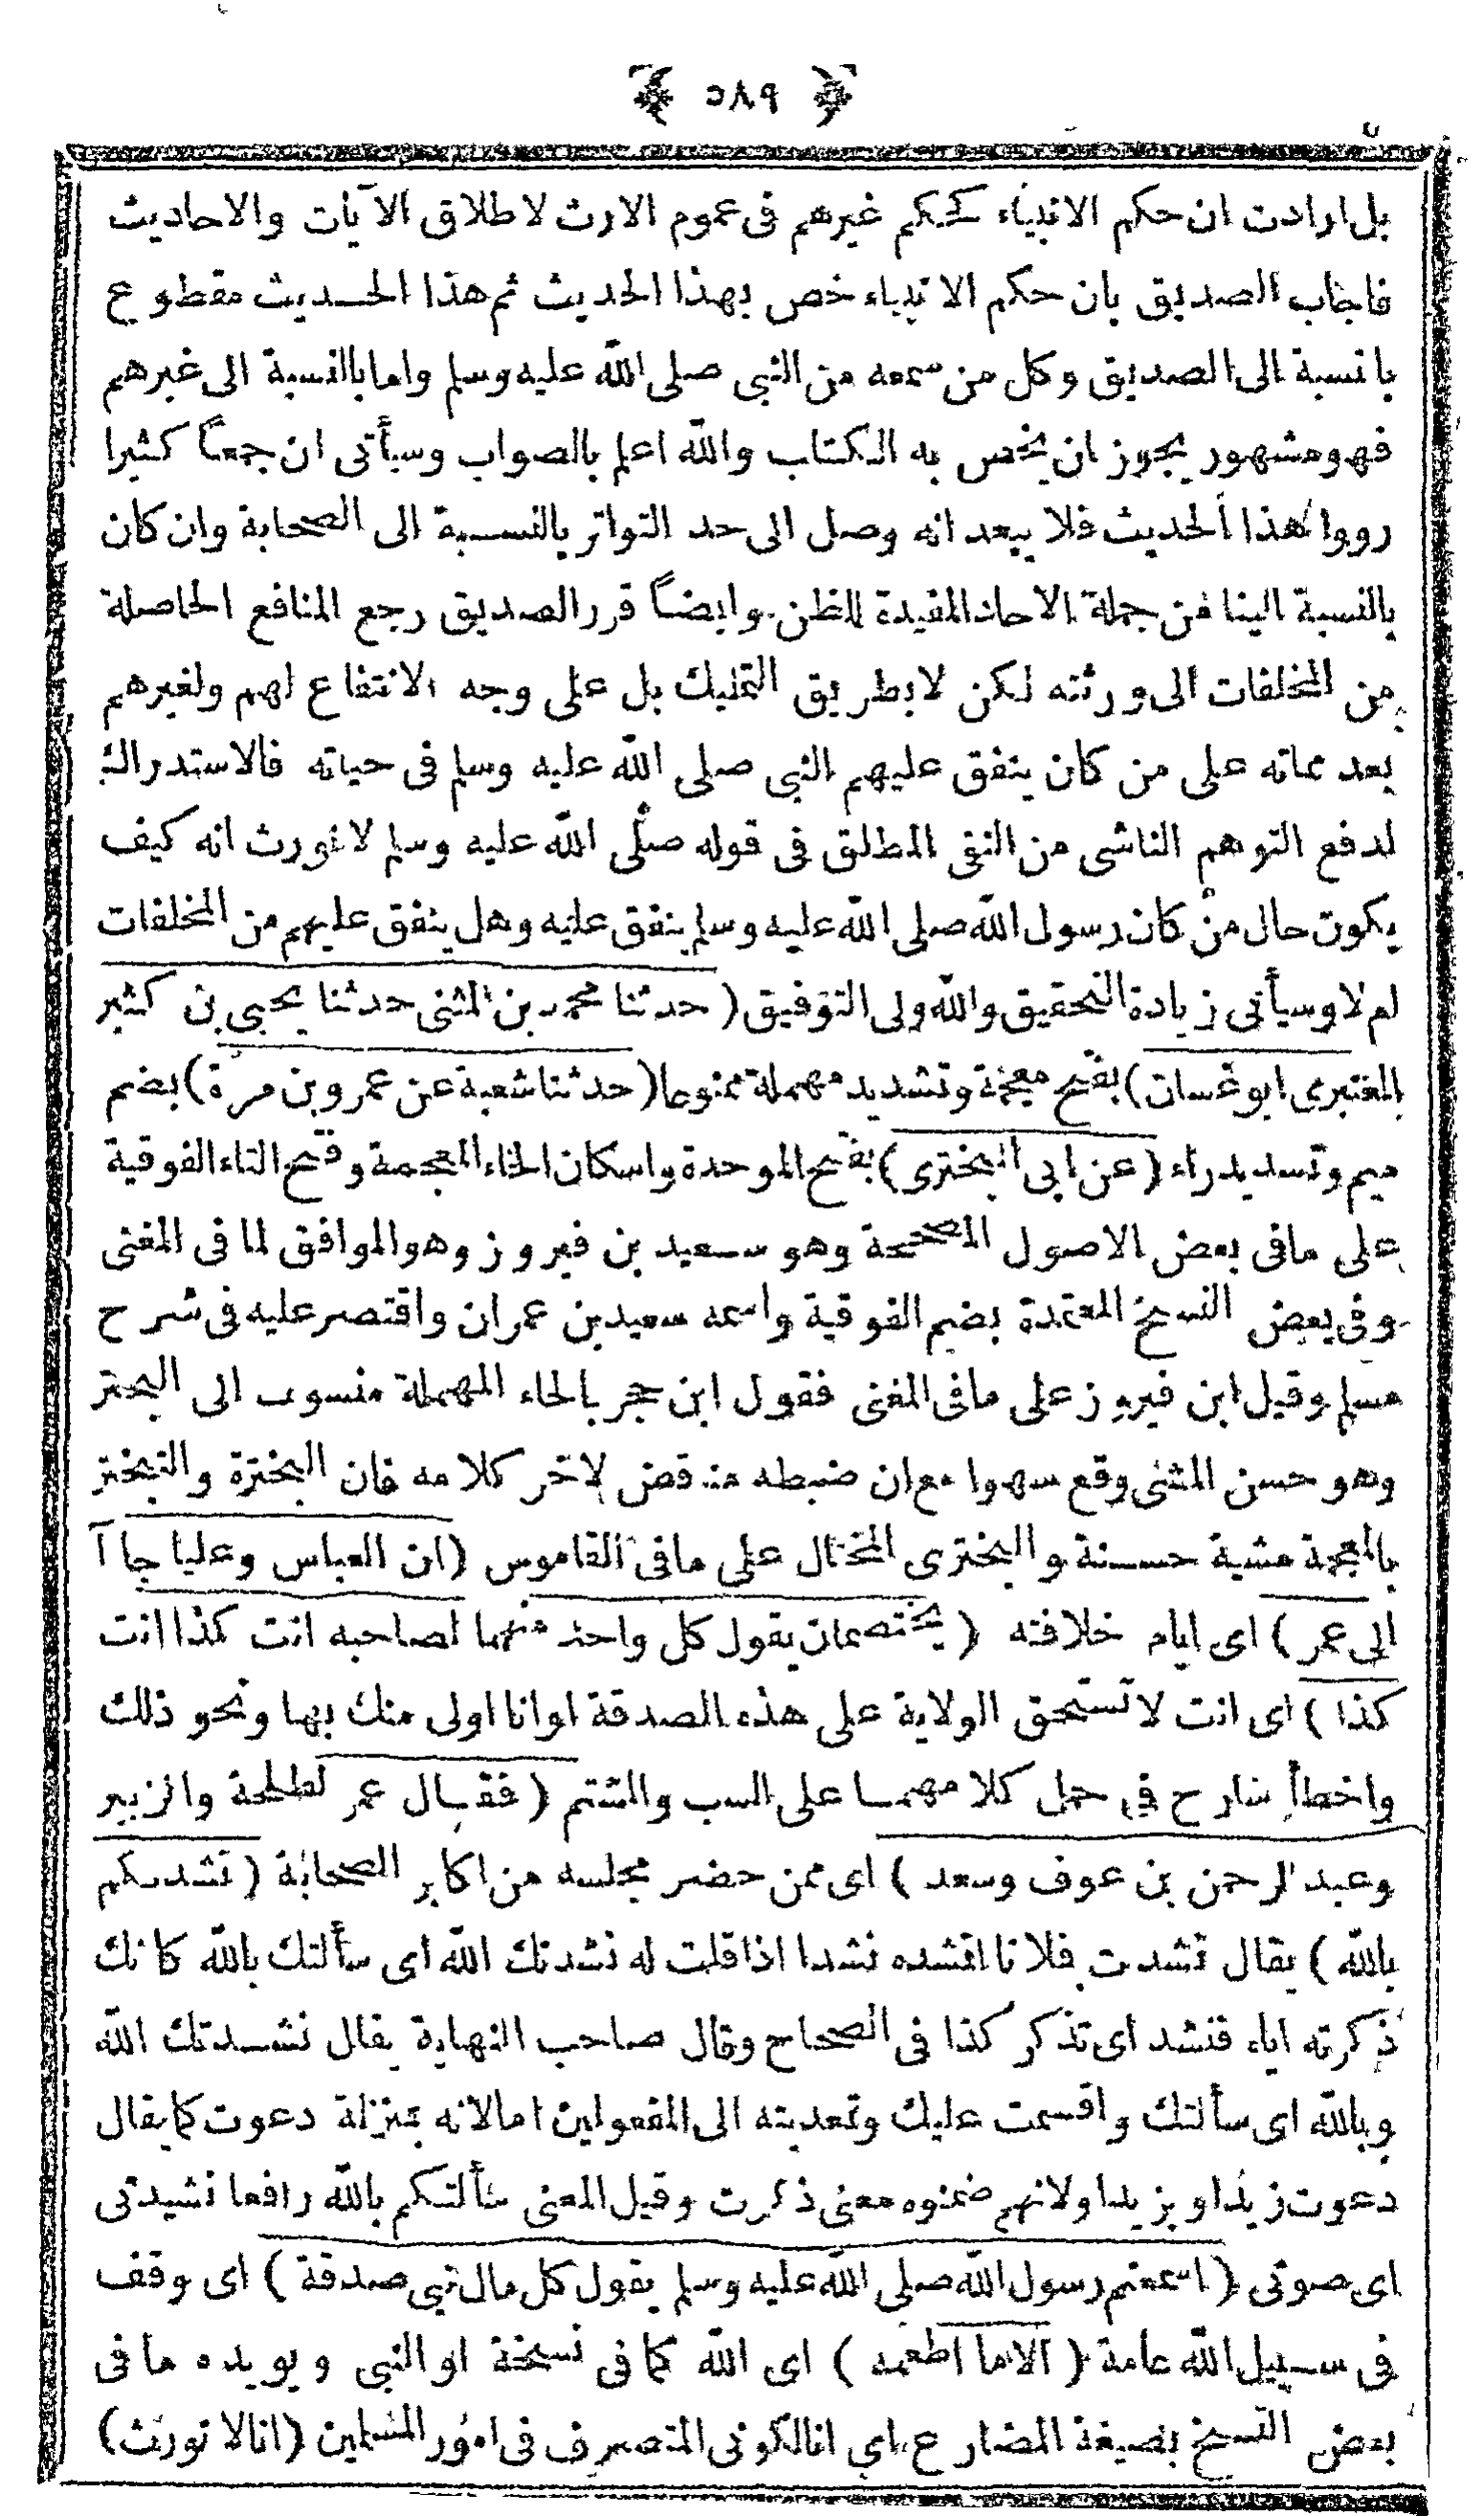 ٥٨٩
بل ارادت ان حكم الانبياء كحكم غيرهم فى عموم الارث لاطلاق الآيات والاحاديث
فاجاب الصديق بان حكم الانبياء خص بهذا الحديث ثم هذا الحديث مقطوع
بالنسبة الى الصديق وكل من سمعه من النبى صلى الله عليه وسلم واما بالنسبة الى غيرهم
فهو مشهور يجوز ان يخص به الكتاب والله اعلم بالصواب وسيأتى ان جمعاً كثيرا
رووا هذا الحديث فلا يبعد انه وصل الى حد التواتر بالنسبة الى الصحابة وان كان
بالنسبة الينا فمن جملة الاحاد المفيدة للظن وايضاً قرر الصديق رجع المنافع الحاصلة
من المخلفات الى ورثته لكن لا بطريق التمليك بل على وجه الانتفاع لهم ولغيرهم
بعد مماته على من كان ينفق عليهم النبى صلى الله عليه وسلم فى حياته فالاستدراك
لدفع التوهم الناشى من النفى المطلق فى قوله صلى الله عليه وسلم لا نورث انه كيف
يكون حال من كان رسول الله صلى الله عليه وسلم ينفق عليه وهل ينفق عليهم من المخلفات
ام لا وسيأتى زيادة التحقيق والله ولى التوفيق (حدثنا محمد بن المثنى حدثنا يحيى بن كثير
العنبرى ابو غسان) بفتح معجمة وتشديد مهملة ممنوعا (حدثنا شعبة عن عمرو بن مرة) بضم
ميم وتشديد راء (عن ابى البخترى) بفتح الموحدة واسكان الخاء المعجمة وفتح التاء الفوقية
على ما فى بعض الاصول المصححة وهو سعيد بن فيروز وهو الموافق لما فى المغنى
وفى بعض النسخ المعتمدة بضم الفوقية واسمه سعيد بن عمران واقتصر عليه فى شرح
مسلم وقيل ابن فيروز على ما فى المغنى فقول ابن حجر بالحاء المهملة منسوب الى البحتر
وهو حسن المشى وقع سهوا مع ان ضبطه مناقض لآخر كلامه فان البخترة والتبختر
بالمعجمة مشية حسنة والبخترى المختال على ما فى القاموس (ان العباس وعليا جاآ
الى عمر) اى ايام خلافته (يختصمان يقول كل واحد منهما لصاحبه انت كذا انت
كذا) اى انت لا تستحق الولاية على هذه الصدقة او انا اولى منك بها ونحو ذلك
واخطأ شارح فى حمل كلامهما على السب والشتم (فقال عمر لطلحة والزبير
وعبد الرحمن بن عوف وسعد) اى ممن حضر مجلسه من اكابر الصحابة (نشدتكم
بالله) يقال نشدت فلانا انشده نشدا اذا قلت له نشدتك الله اى سألتك بالله كانك
ذكرته اياه فنشد اى تذكر كذا فى الصحاح وقال صاحب النهاية يقال نشدتك الله
وبالله اى سألتك واقسمت عليك وتعديته الى المفعولين اما لانه بمنزلة دعوت كما يقال
دعوت زيدا وبزيدا ولانهم ضمنوه معنى ذكرت وقيل المعنى سألتكم بالله رافعا نشيدتى
اى صوتى (اسمعتم رسول الله صلى الله عليه وسلم يقول كل مال نبى صدقة) اى وقف
فى سبيل الله عامة (الا ما اطعمه) اى الله كما فى نسخة او النبى ويويده ما فى
بعض النسخ بصيغة المضارع اى انا لكونى المتصرف فى امور المسلمين (انا لا نورث)